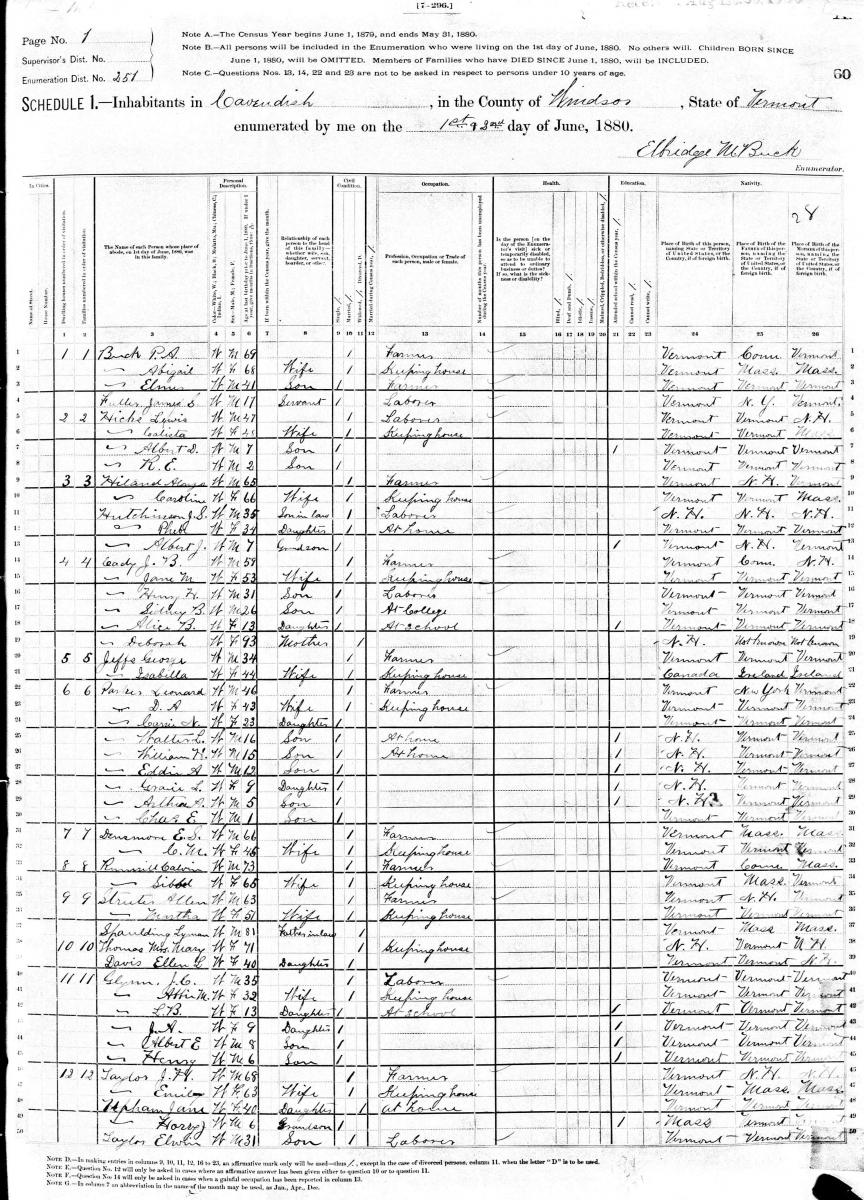 [7-296.]
Page No. 1
Supervisor's Dist. No.
Enumeration Dist. No. 251
Note A.—The Census Year begins June 1, 1879, and ends May 31, 1880.
Note B.—All persons will be included in the Enumeration who were living on the 1st day of June, 1880. No others will. Children BORN SINCE
June 1, 1880, will be OMITTED. Members of Families who have DIED SINCE June 1, 1880, will be INCLUDED.
Note C.—Questions Nos. 13, 14, 22 and 23 are not to be asked in respect to persons under 10 years of age.
60
SCHEDULE I.—Inhabitants in Cavendish, in the County of Windsor, State of Vermont
enumerated by me on the 1st day of June, 1880.
Elbridge M Buck
Enumerator.
In Cities. Personal Description. Civil Condition. Occupation. Health. Education. Nativity.
28
Name of Street. House Number. Dwelling houses numbered in order of visitation. Families numbered in order of visitation. The Name of each Person whose place of abode, on 1st day of June, 1880, was in this family. Relationship of each person to the head of this family—whether wife, son, daughter, servant, boarder, or other. Profession, Occupation or Trade of each person, male or female. Place of Birth of this person, naming State or Territory of United States, or the Country, if of foreign birth.
1 2 3 4 5 6 7 8 9 10 11 12 13 14 15 16 17 18 19 20 21 22 23 24 25 26
1 1 1 Buck P. A. W M 69 / Farmer Vermont Conn. Vermont 1
2 " Abigail W F 68 Wife / Keeping house Vermont Mass. Mass. 2
3 " Elmer W M 41 Son / Farmer Vermont Vermont Vermont 3
4 Fuller James W M 17 Servant / Laborer Vermont N.Y. Vermont 4
5 2 2 Hicks Lewis W M 47 / Laborer Vermont Vermont N.H. 5
6 " Calista W F Wife / Keeping house Vermont Vermont Mass 6
7 " Albert D. W M 7 Son / / Vermont Vermont Vermont 7
8 " R. E. W M 2 Son / Vermont Vermont Vermont 8
9 3 3 Hiland W M 65 / Farmer Vermont N.H. Vermont 9
10 " Caroline W F 66 Wife / Keeping house Vermont Vermont Mass. 10
11 Hutchinson J. S. W M 35 Son in law / Laborer N.H. N.H. N.H. 11
12 " W F 34 Daughter / At home Vermont Vermont Vermont 12
13 " Albert J. W M 7 Grandson / / Vermont N.H. Vermont 13
14 4 4 Cady J. B. W M 59 / Farmer Vermont Conn. N.H. 14
15 " Jane M W F 53 Wife / Keeping house Vermont Vermont Vermont 15
16 " Henry H. W M 31 Son / Laborer Vermont Vermont Vermont 16
17 " Sidney B. W M 26 Son / At College Vermont Vermont Vermont 17
18 " Alice B. W F 13 Daughter / At School / Vermont Vermont Vermont 18
19 " Deborah W F 93 Mother / N.H. Not known Not known 19
20 5 5 Jeffs George W M 34 / Farmer Vermont Vermont Vermont 20
21 " Isabella W F 44 Wife / Keeping house Canada Ireland Ireland 21
22 6 6 Leonard W M 46 / Farmer Vermont New York Vermont 22
23 " D. A W F 43 Wife / Keeping house Vermont Vermont Vermont 23
24 " Carrie N. W F 23 Daughter / Vermont Vermont Vermont 24
25 " Walter L. W M 16 Son / At home / N.H. Vermont Vermont 25
26 " William H. W M 15 Son / At home / N.H. Vermont Vermont 26
27 " Eddie A W M 12 Son / / N.H. Vermont Vermont 27
28 " Grace L. W F 9 Daughter / / N.H. Vermont Vermont 28
29 " Arthur W M 5 Son / / N.H. Vermont Vermont 29
30 " Chas E. W M 1 Son / Vermont Vermont Vermont 30
31 7 7 Densmore E. S. W M 66 / Farmer Vermont Mass. Mass. 31
32 " C. M. W F 45 Wife / Keeping house Vermont Vermont Vermont 32
33 8 8 Calvin W M 73 / Farmer Vermont Conn. Mass. 33
34 " W F 65 Wife / Keeping house Vermont Mass. Vermont 34
35 9 9 Allen W M 63 / Farmer Vermont N.H. Vermont 35
36 " Martha W F 51 Wife / Keeping house Vermont Vermont Vermont 36
37 Spaulding Lyman W M 81 Father in law / Vermont Mass Mass. 37
38 10 10 Thomas Mrs. Mary W F 71 / Keeping house N.H. Vermont N.H. 38
39 Davis Ellen L. W F 40 Daughter / Vermont Vermont N.H. 39
40 11 11 Glynn J. C. W M 35 / Laborer Vermont Vermont Vermont 40
41 " Abbie M. W F 32 Wife / Keeping house Vermont Vermont Vermont 41
42 " L. B. W F 13 Daughter / At School / Vermont Vermont Vermont 42
43 " J. A. W F 9 Daughter / / Vermont Vermont Vermont 43
44 " Albert E W M 8 Son / / Vermont Vermont Vermont 44
45 " Henry W M 6 Son / / Vermont Vermont Vermont 45
46 12 12 Taylor J. H. W M 68 / Farmer Vermont N.H. N.H. 46
47 " Emily W F 63 Wife / Keeping house Vermont Mass. Mass. 47
48 Upham Jane W F 40 Daughter / at home Vermont Vermont Vermont 48
49 " Harry W M 6 Grandson / / Mass Vermont Vermont 49
50 Taylor Elwin W M 31 Son / Laborer Vermont Vermont Vermont 50
NOTE D.—In making entries in columns 9, 10, 11, 12, 16 to 23, an affirmative mark only will be used—thus /, except in the case of divorced persons, column 11, when the letter "D" is to be used.
NOTE E.—Question No. 12 will only be asked in cases where an affirmative answer has been given either to question 10 or to question 11.
NOTE F.—Question No. 14 will only be asked in cases when a gainful occupation has been reported in column 13.
NOTE G.—In column 7 an abbreviation in the name of the month may be used, as Jan., Apr., Dec.